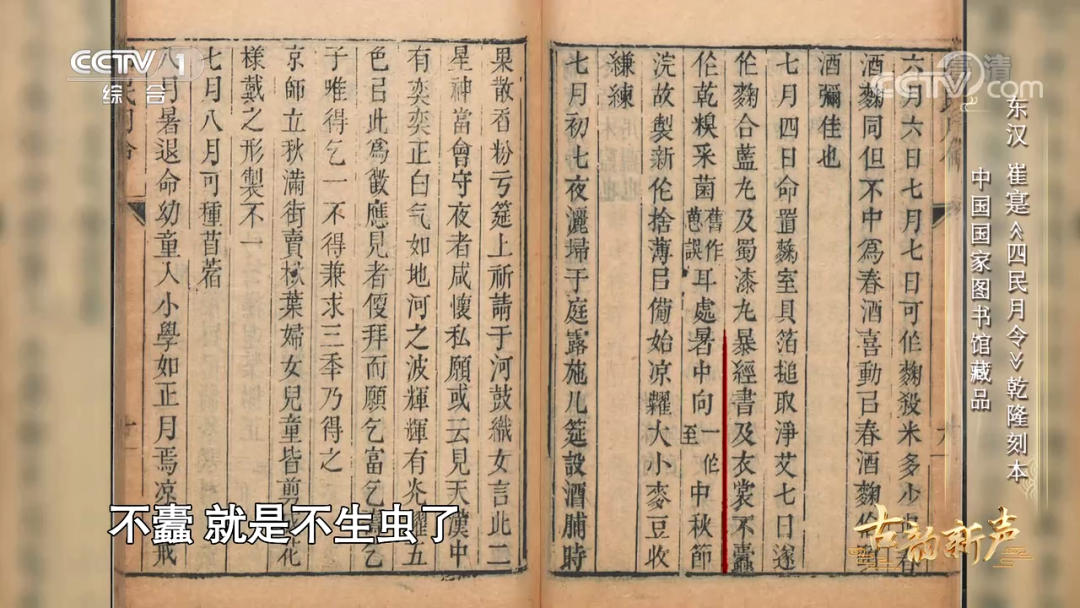 CCTV 1
综合
高清
CCTV.com
东汉 崔寔《四民月令》乾隆刻本
中国国家图书馆藏品
六月六日七月七日可作麴殺米多少
酒麴同但不中為春酒喜動㠯春酒麴
酒彌佳也
七月四日命置麴室具箔搥取淨艾七日遂
作麴合藍丸及蜀漆丸暴經書及衣裳不蠹
作乾糗采菌舊作葸誤耳處暑中向一作至中秋節
浣故製新作捨薄㠯備始凉糶大小麥豆收
縑練
七月初七夜灑埽于庭露施几筵設酒脯時
果散香粉于筵上祈請于河鼓織女言此二
星神當會守夜者咸懷私願或云見天漢中
有奕奕正白气如地河之波輝有光耀五
色㠯此為徵應見者便拜而願乞富乞乞
子唯得乞一不得兼求三年乃得之
京師立秋滿街賣楸葉婦女兒童皆剪花
樣戴之形製不一
七月八月可種苜蓿
八月暑退命幼童入小學如正月焉凉戒
不蠹 就是不生虫了
古韵新声